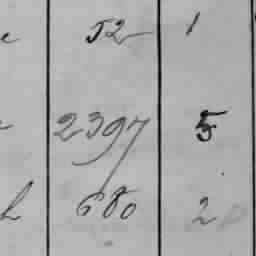 e 52 1
2397 5
h 680 2